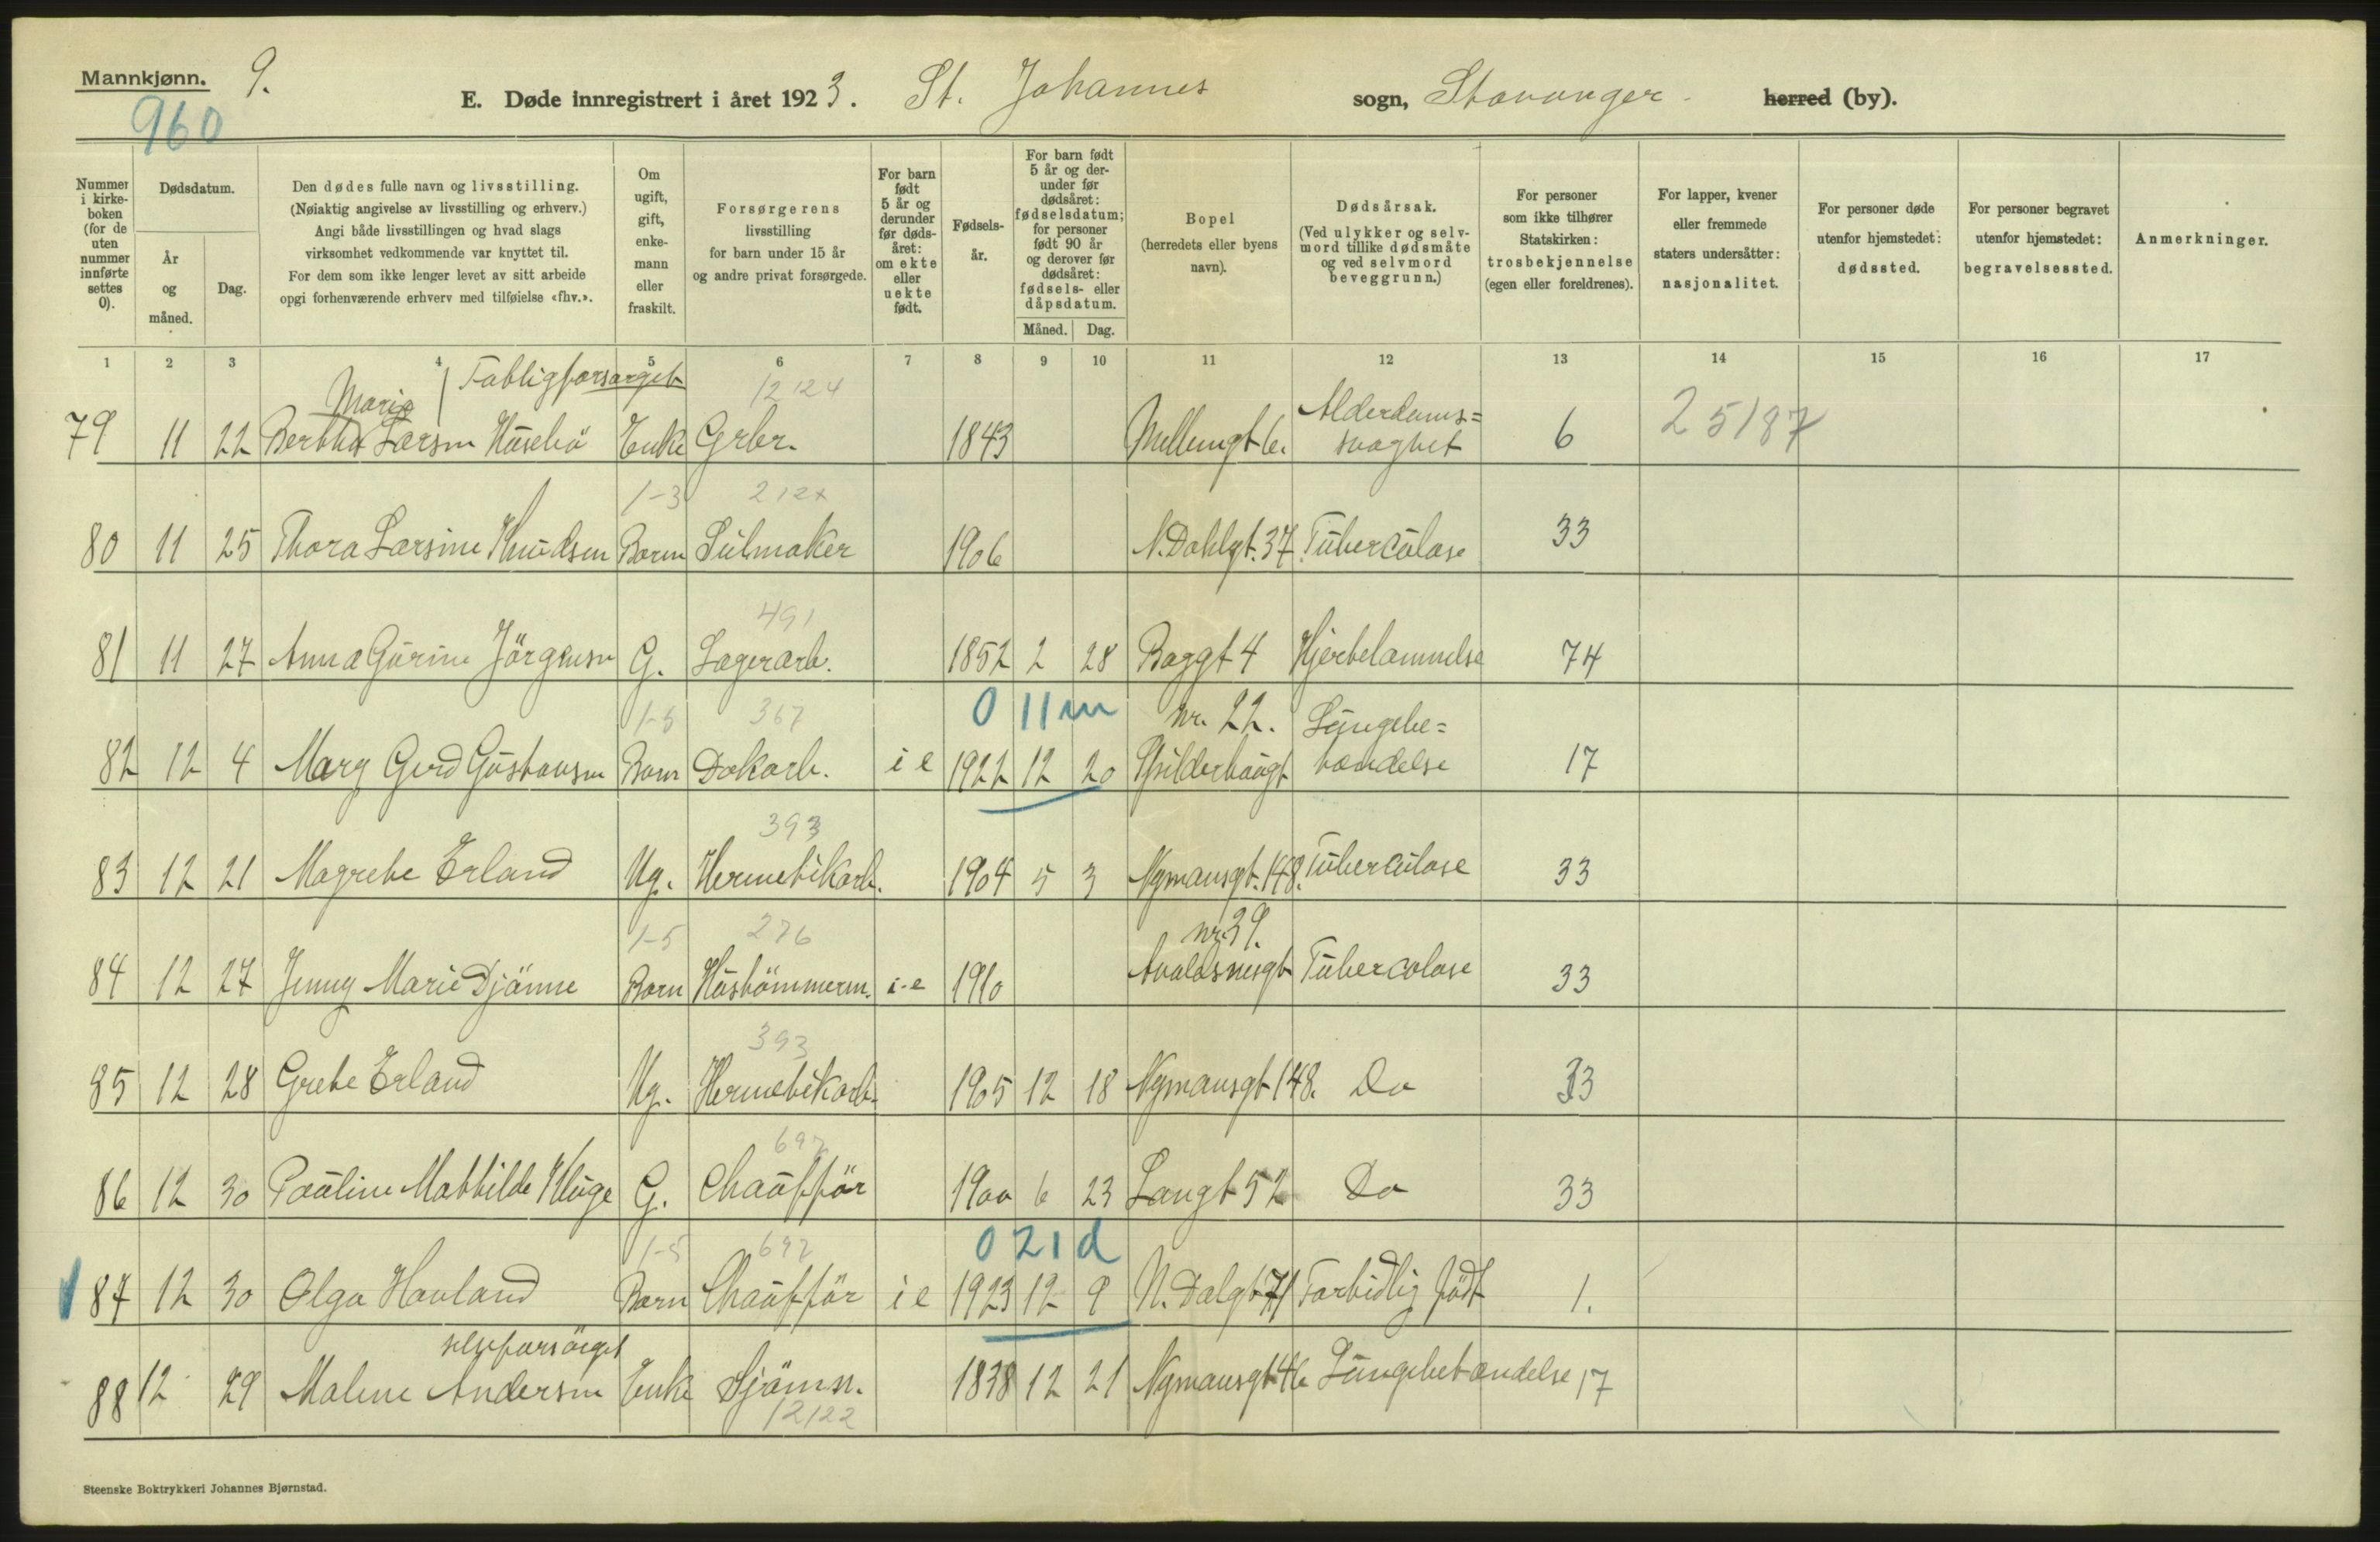 Mannkjønn. 9.
960
E. Døde innregistrert i året 1923. St. Johannes sogn, Stavanger herred (by).
Nummer i kirkeboken (for de uten nummer innførte settes 0).
Dødsdatum.
År og måned.
Dag.
Den dødes fulle navn og livsstilling.
(Nøiaktig angivelse av livsstilling og erhverv.)
Angi både livsstillingen og hvad slags
virksomhet vedkommende var knyttet til.
For dem som ikke lenger levet av sitt arbeide
opgi forhenværende erhverv med tilføielse «fhv.».
Om ugift, gift, enkemann eller fraskilt.
Forsørgerens livsstilling for barn under 15 år og andre privat forsørgede.
For barn født 5 år og derunder før dødsåret: om ekte eller uekte født.
Fødselsår.
For barn født 5 år og derunder før dødsåret: fødselsdatum; for personer født 90 år og derover før dødsåret: fødsels- eller dåpsdatum.
Måned. Dag.
Bopel (herredets eller byens navn).
Dødsårsak. (Ved ulykker og selvmord tillike dødsmåte og ved selvmord beveggrunn.)
For personer som ikke tilhører Statskirken: trosbekjennelse (egen eller foreldrenes).
For lapper, kvener eller fremmede staters undersåtter: nasjonalitet.
For personer døde utenfor hjemstedet: dødssted.
For personer begravet utenfor hjemstedet: begravelsessted.
Anmerkninger.
1 2 3 4 5 6 7 8 9 10 11 12 13 14 15 16 17
Marie Fattigforsørget 12124
79 11 22 Bertha Larsen Húsebö Enke Grbr. 1843 Mellemgt 6. Alderdoms=svaghet 6 25187
1-3 212x
80 11 25 Thora Larsine Knúdsen Barn Seilmaker 1906 N. Dahlgt. 37 Túberculose 33
491
81 11 27 Anna Gúrine Jörgensen G. Lagerarb. 1852 2 28 Baggt 4 Hjertelammelse 74
1-5 367 0 11 m nr. 22. Lúngebe=
82 12 4 Mary Gerd Gústavsen Barn Dokarb. i e 1922 12 20 tændelse 17
393
83 12 21 Magrete Erland Ug. Hermetikarb. 1904 5 3 Nymansgt. 148. Túberculose 33
1-5 276 nr. 39.
84 12 27 Jenny Marie Djönne Barn Hústömmerm. i-e 1910 Avaldsnesgt Túbercolose 33
393
85 12 28 Grete Erland Ug. Hermetikarb. 1905 12 18 Nymansgt 148. Do 33
697
86 12 30 Paúline Mathilde Klúge G. Chaúfför 1900 6 23 Langt 52 Do 33
1-5 697 0 21 d
87 12 30 Olga Havland Barn Chaúfför i e 1923 12 9 N. Dalgt 71 Fortidlig födt 1.
selvforsörget
88 12 29 Malene Andersen Enke Sjömn. 1838 12 21 Nymansgt 46 Lúngebetændelse 17
12122
Steenske Boktrykkeri Johannes Bjørnstad.